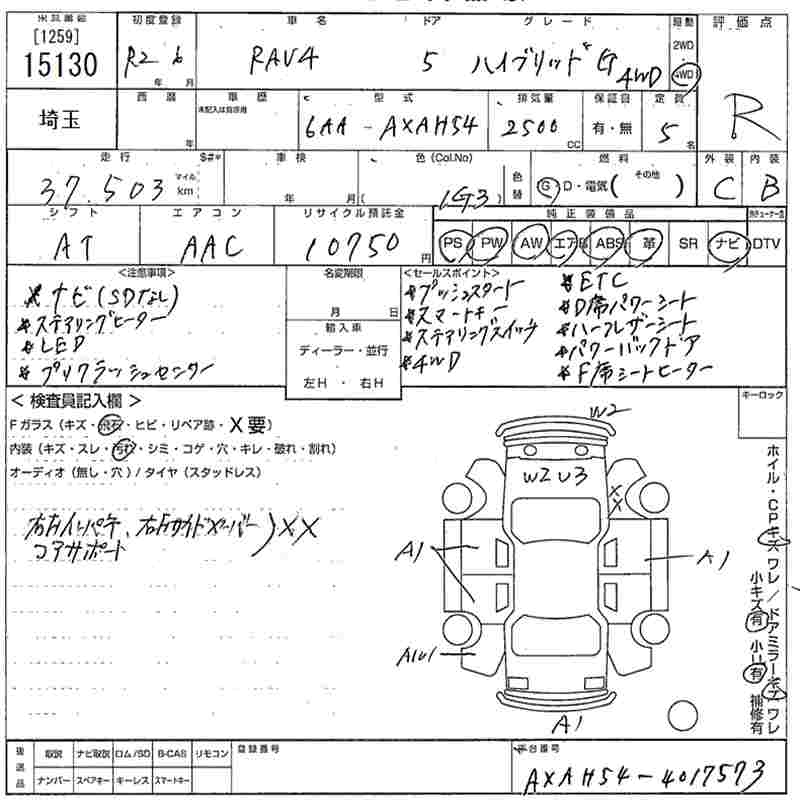 [1259]
15130
初度登録
R2 6
年 月
車名
RAV4
ドア
5
グレード
ハイブリッド G 4WD
駆動
2WD
4WD
評価点
R
埼玉
西暦
年
車歴
未記入は自家用
型式
6AA - AXAH54
排気量
2500
CC
保証書
有・無
定員
5
名
走行
$#*
37.503
マイル
km
車検
年 月
色 (Col.No)
(1G3)
色替
燃料
G・D・電気( その他 )
外装
C
内装
B
シフト
AT
エアコン
AAC
リサイクル預託金
10750
円
純正装備品
PS PW AW エアB ABS 革 SR ナビ DTV
<注意事項>
* ナビ(SDなし)
* ステアリングヒーター
* LED
* プリクラッシュセンサー
名変期限
月 日
輸入車
ディーラー・並行
左H ・ 右H
<セールスポイント>
* プッシュスタート
* スマートキー
* ステアリングスイッチ
* 4WD
* ETC
* D席パワーシート
* ハーフレザーシート
* パワーバックドア
* F席シートヒーター
< 検査員記入欄 >
Fガラス (キズ・飛石・ヒビ・リペア跡・X要)
内装 (キズ・スレ・汚れ・シミ・コゲ・穴・キレ・破れ・割れ)
オーディオ (無し・穴) / タイヤ (スタッドレス)
コアサポート
) XX
キーロック
W2
W2 U3
X
X
A1
A1
A1U1
A1
ホイル・CPキズワレ/ドアミラーキズワレ
小キズ有 小U有 補修有
後送品
取説 ナビ取説 ロム/SD B-CAS リモコン
ナンバー スペアキー キーレス スマートキー
登録番号
車台番号
AXAH54-4017573